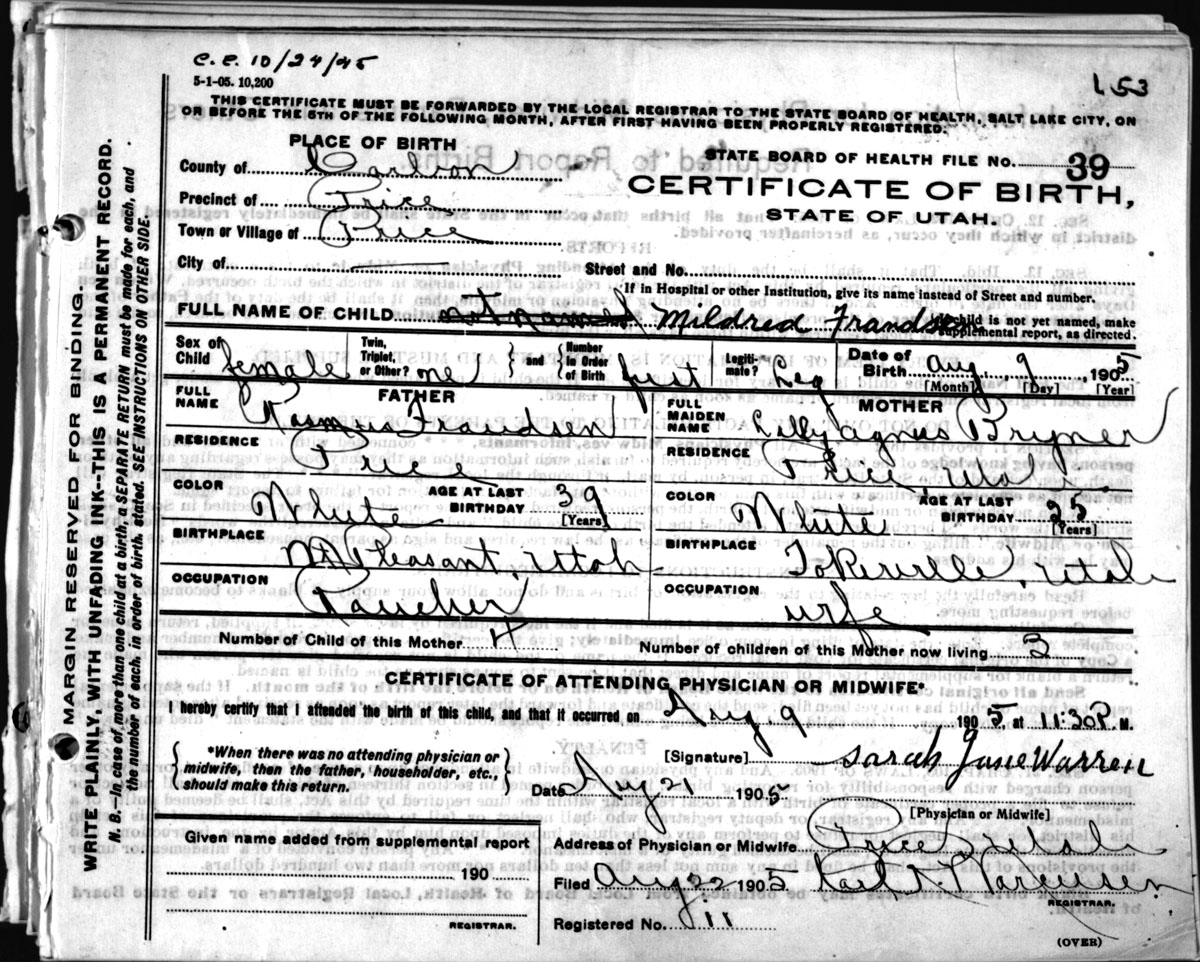 C.C. 10/24/45
5-1-05. 10,200
153
THIS CERTIFICATE MUST BE FORWARDED BY THE LOCAL REGISTRAR TO THE STATE BOARD OF HEALTH, SALT LAKE CITY, ON
OR BEFORE THE 5TH OF THE FOLLOWING MONTH, AFTER FIRST HAVING BEEN PROPERLY REGISTERED.
PLACE OF BIRTH
STATE BOARD OF HEALTH FILE NO. 39
County of Carbon
CERTIFICATE OF BIRTH,
Precinct of Price
STATE OF UTAH.
Town or Village of Price
City of
Street and No.
If in Hospital or other Institution, give its name instead of Street and number.
FULL NAME OF CHILD not named Mildred Frandsen
child is not yet named, make supplemental report, as directed.
Sex of Child female Twin, Triplet, or Other? one and Number in Order of Birth first Legitimate? Leg Date of Birth Aug 9 1905
[Month] [Day] [Year]
FATHER
FULL NAME Rasmus Frandsen
MOTHER
FULL MAIDEN NAME Lilly Agnus Bryner
RESIDENCE Price
RESIDENCE Price Utah
COLOR White AGE AT LAST BIRTHDAY 39 [Years]
COLOR White AGE AT LAST BIRTHDAY 35 [Years]
BIRTHPLACE Mt Pleasant, Utah
BIRTHPLACE Tokerville, Utah
OCCUPATION Rancher
OCCUPATION wife
Number of Child of this Mother 4
Number of children of this Mother now living 3
CERTIFICATE OF ATTENDING PHYSICIAN OR MIDWIFE*
I hereby certify that I attended the birth of this child, and that it occurred on Aug 9 1905 at 11:30 P. M.
*When there was no attending physician or
midwife, then the father, householder, etc.,
should make this return.
[Signature] Sarah Jane Warren
Date Aug 21 1905.
[Physician or Midwife]
Given name added from supplemental report
190
REGISTRAR.
Address of Physician or Midwife Price Utah
Filed Aug 22 1905
REGISTRAR.
Registered No. 11
(OVER)
MARGIN RESERVED FOR BINDING.
WRITE PLAINLY, WITH UNFADING INK--THIS IS A PERMANENT RECORD.
N. B.--In case of more than one child at a birth, a SEPARATE RETURN must be made for each, and
the number of each, in order of birth, stated. SEE INSTRUCTIONS ON OTHER SIDE.